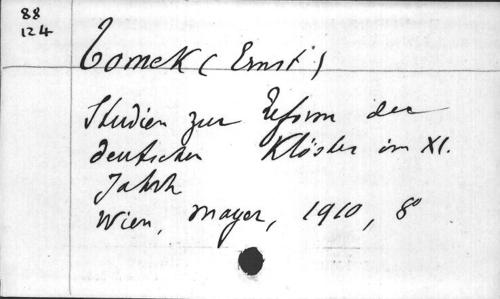 88
124
Tomek (Ernst)
Studien zur Reform der
deutschen Klöster im XI.
Jahrh
Wien, Mayer, 1910, 8°